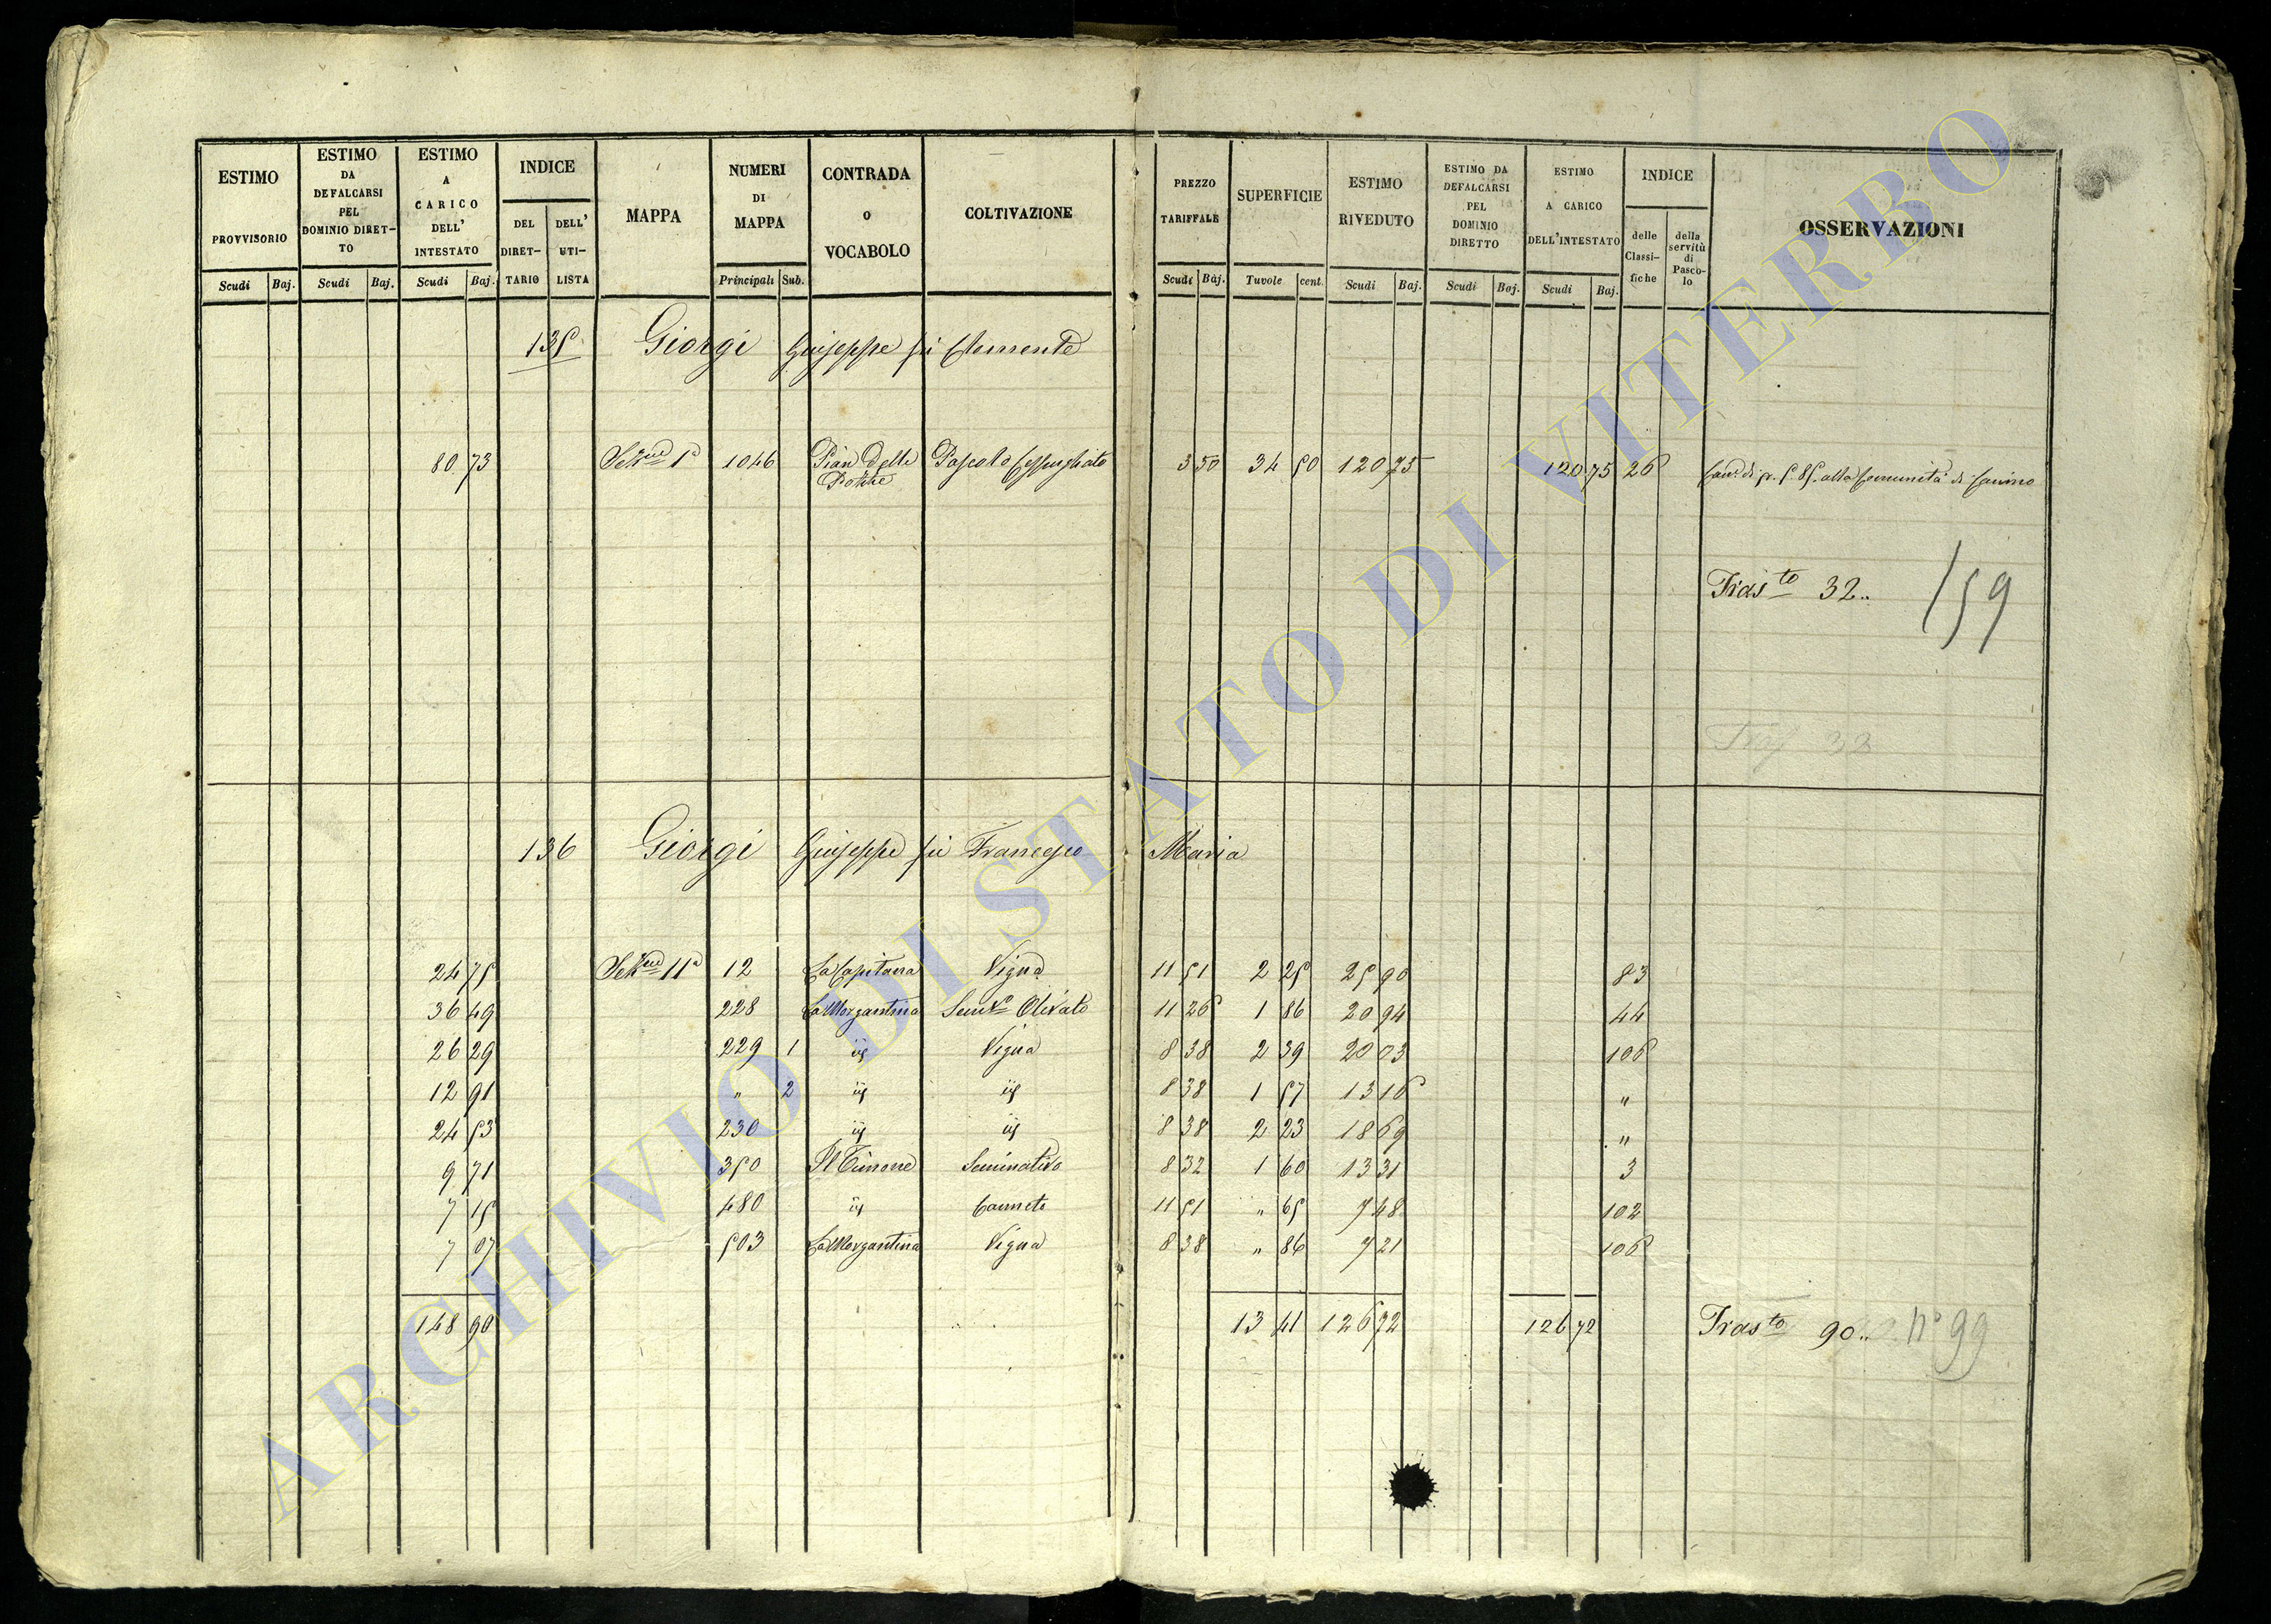 ESTIMO PROVVISORIO Scudi Baj.
ESTIMO DA DEFALCARSI PEL DOMINIO DIRET-TO Scudi Baj.
ESTIMO A CARICO DELL' INTESTATO Scudi Baj.
INDICE DEL DIRET-TARIO DELL' UTI-LISTA
MAPPA
NUMERI DI MAPPA Principali Sub.
CONTRADA O VOCABOLO
COLTIVAZIONE
PREZZO TARIFFALE Scudi Baj.
SUPERFICIE Tavole cent.
ESTIMO RIVEDUTO Scudi Baj.
ESTIMO DA DEFALCARSI PEL DOMINIO DIRETTO Scudi Baj.
ESTIMO A CARICO DELL'INTESTATO Scudi Baj.
INDICE delle Classi-fiche della servitù di Pasco-lo
OSSERVAZIONI
135 Giorgi Giuseppe fù Clemente
80 73 Sezne 1a 1046 Pian delle Pascolo Cespugliato 3 50 34 50 120 75 120 75 26 alla Comunità di Canino
Trasto 32.. 159
Tras 32
136 Giorgi Giuseppe fù Francesco Maria
24 75 Sezne 11a 12 La Capitana Vigna 11 51 2 25 25 90 83
36 49 228 La Morgantina Semvo Olivato 11 26 1 86 20 94 44
26 29 229 1 iis Vigna 8 38 2 39 20 03 106
12 91 " 2 iis iis 8 38 1 57 13 16 "
24 53 230 iis iis 8 38 2 23 18 69 "
9 71 350 Il Timone Seminativo 8 32 1 60 13 31 3
7 15 480 iis Canneto 11 51 " 65 7 48 102
7 07 503 La Morgantina Vigna 8 38 " 86 7 21 106
148 90 13 41 126 72 126 72 Trasto 90.. n° 99
ARCHIVIO DI STATO DI VITERBO